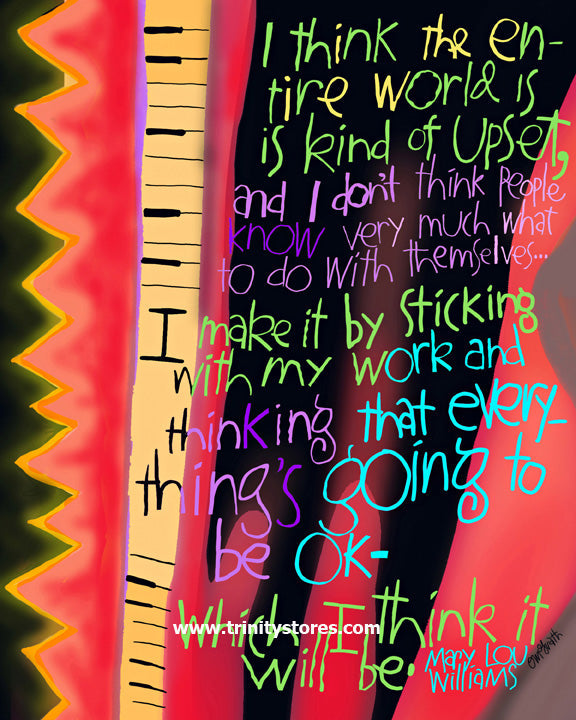 I think the en-
tire world is
is kind of upset,
and I don't think people
know very much what
to do with themselves...
I make it by sticking
with my work and
thinking that every-
thing's going to
be ok-
which I think it
www.trinitystores.com
will be.
Mary Lou
Williams